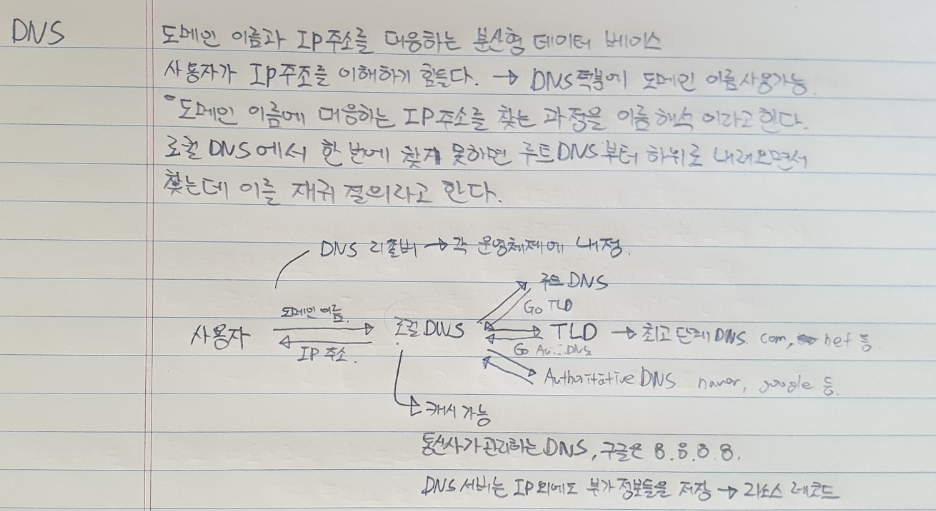 DNS
도메인 이름과 IP주소를 대응하는 분산형 데이터 베이스
사용자가 IP주조를 이해하기 힘들다. → DNS덕분에 도메인 이름사용가능.
도메인 이름에 대응하는 IP주소를 찾는 과정을 이름해석 이라고한다.
로컬 DNS에서 한 번에 찾지 못하면 루트DNS부터 하위로 내려오면서
찾는데 이를 재귀 결의라고 한다.
DNS 리졸버 → 각 운영체제에 내정.
루트 DNS
Go TLD
도메인 이름.
사용자
로컬 DNS
TLD → 최고 단계 DNS. com, net 등
IP 주소.
Go Au..DNS
Authoritative DNS naver, google 등.
캐시 가능
통신사가 관리하는 DNS, 구글은 8.8.8.8.
DNS 서버는 IP외에도 부가정보들을 저장 → 리소스 레코드